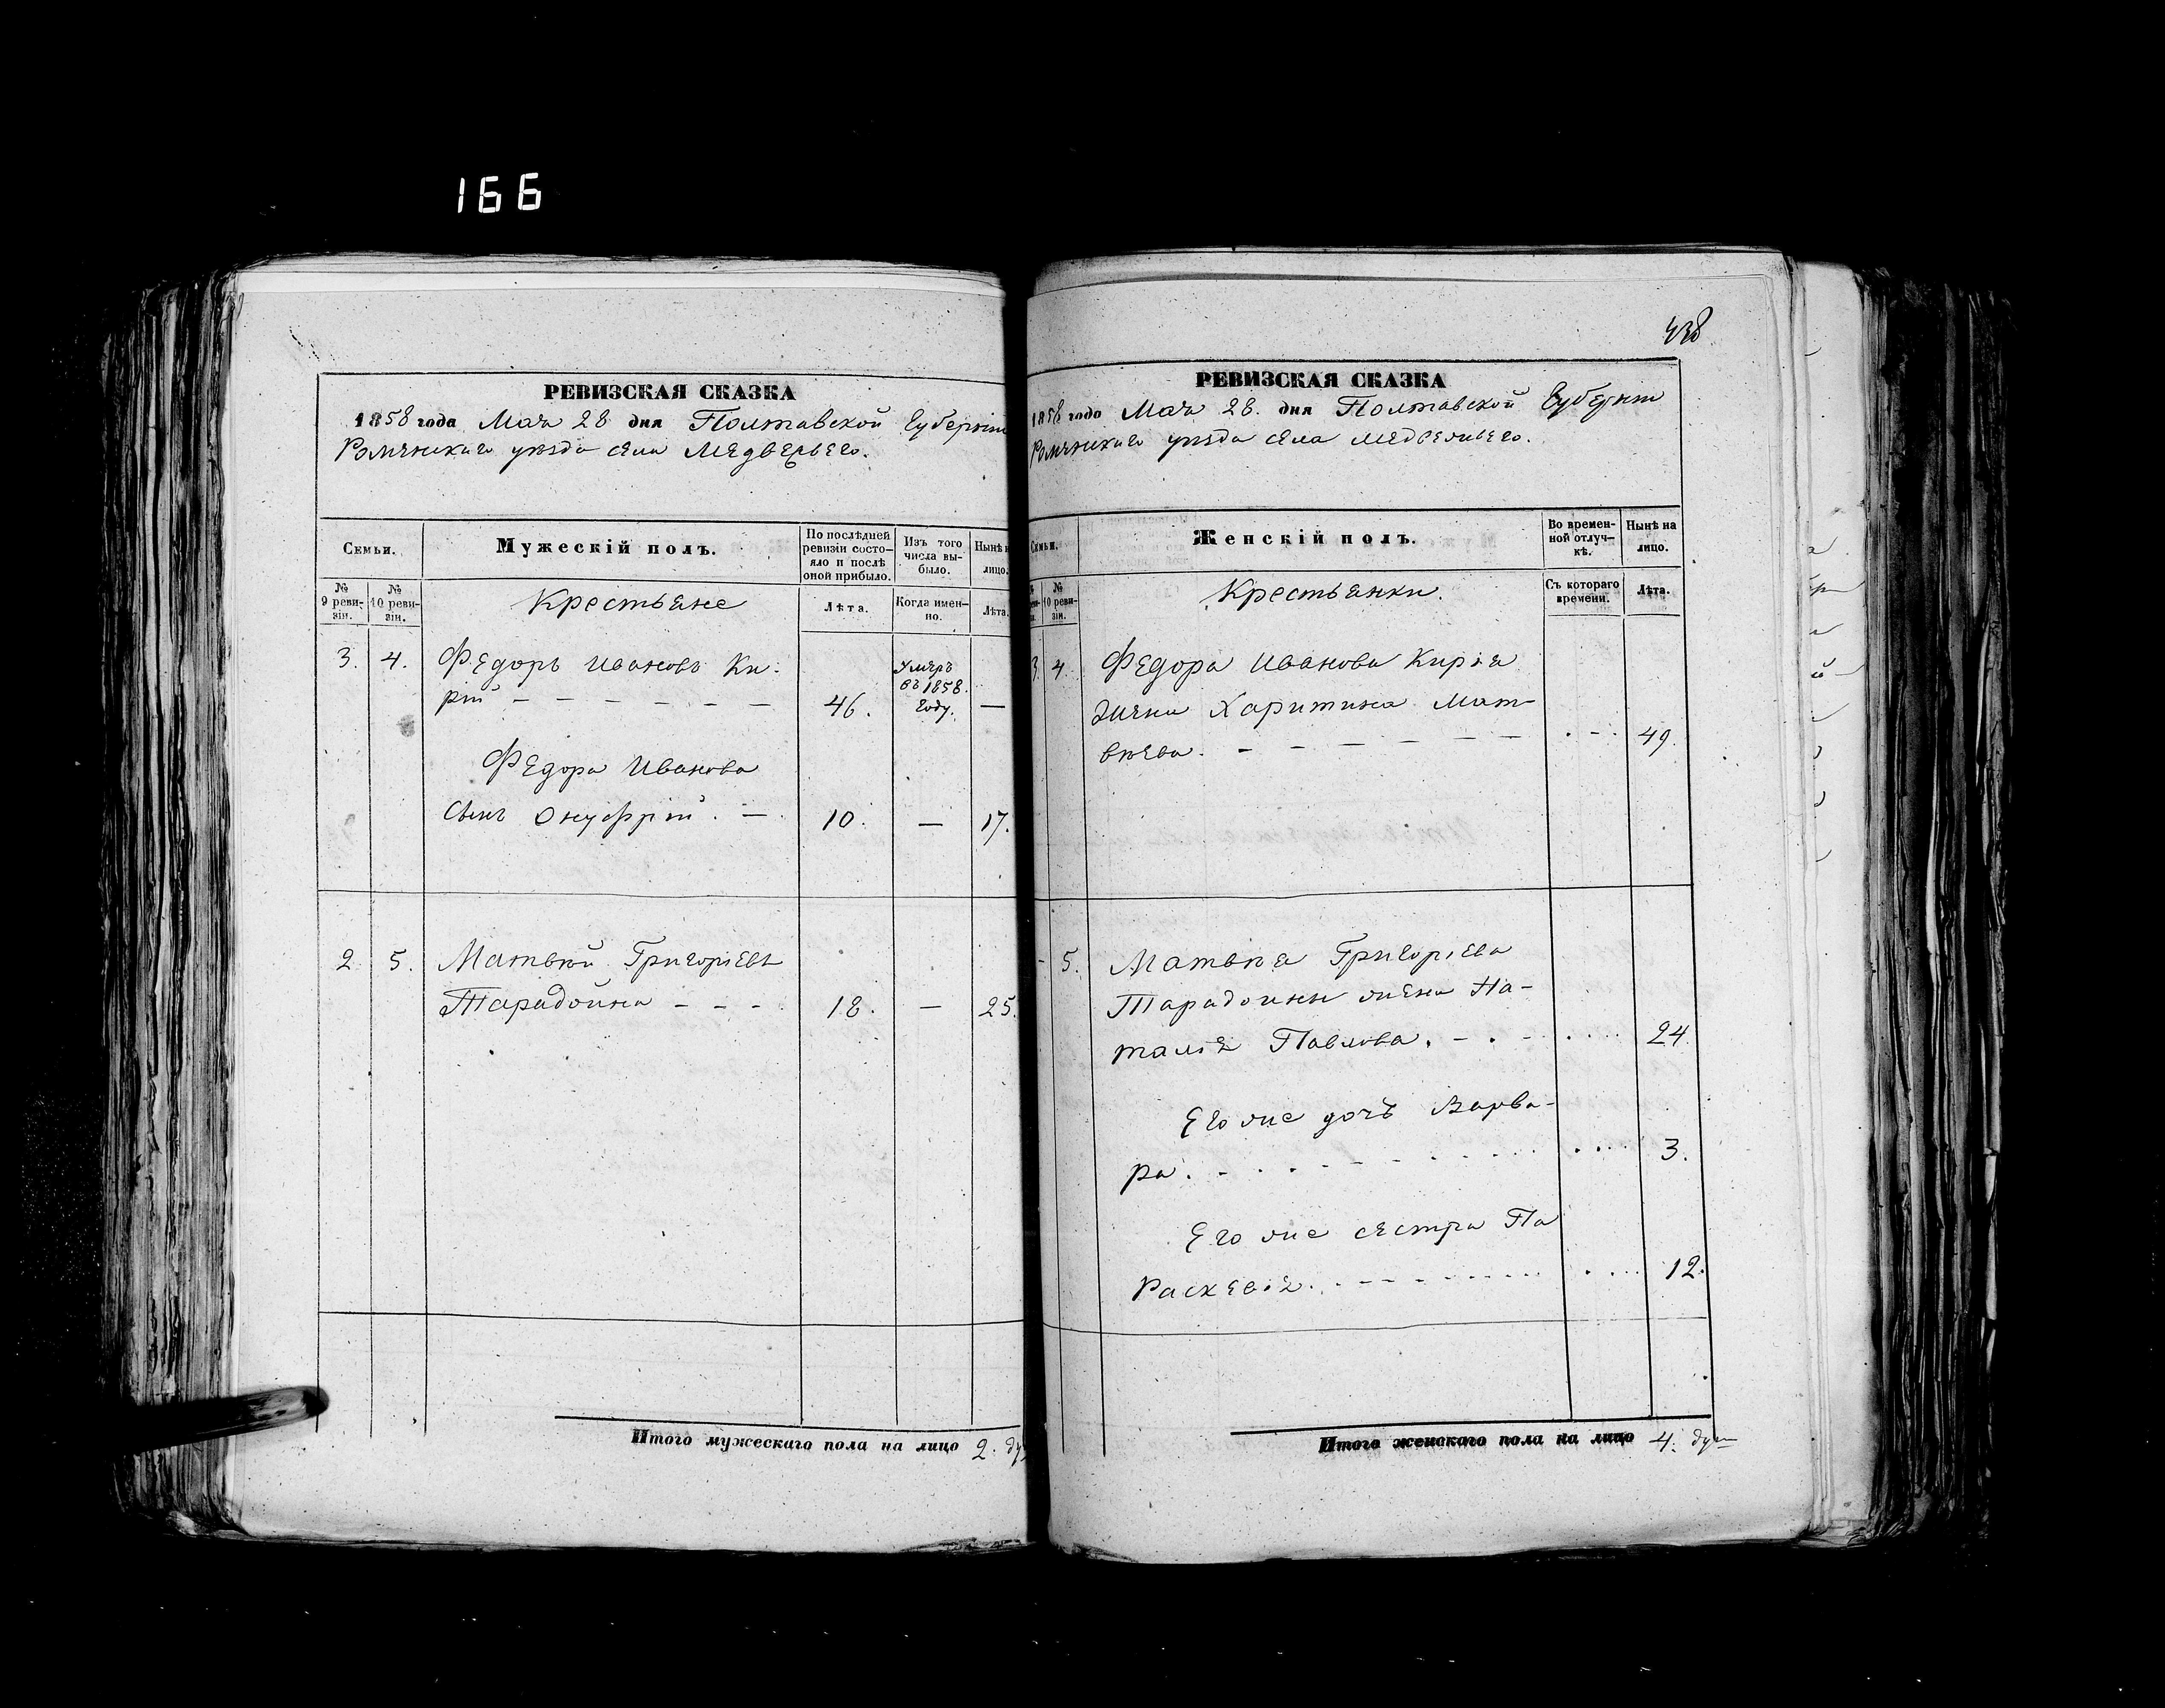 166
РЕВИЗСКАЯ СКАЗКА
1858 года Мая 28 дня Полтавской Губерніи
Роменскаго уѣзда села Медвежьего.
Семьи.
Мужескій полъ.
По послѣдней ревизіи состо-яло и послѣ оной прибыло.
Изъ того числа вы-было.
Нынѣ н
лицо.
№ 9 реви-зіи.
№ 10 реви-зіи.
Крестьяне
Лѣта.
Когда имен-но.
Лѣта.
3. 4. Федоръ Ивановъ Ки-
рій - - - - - - 46. Умеръ въ 1858. году. —
Федора Иванова
сынъ Онуфрій. — 10. — 17.
2 5. Матвѣй Григорьевъ
Тарадойна - - - 18. — 25.
Итого мужескаго пола на лицо 2. ду
438
РЕВИЗСКАЯ СКАЗКА
1858 года Мая 28. дня Полтавской Губерніи
Роменскаго уѣзда села Медвежьего.
Семьи.
Женскій полъ.
Во времен-ной отлуч-кѣ.
Нынѣ на лицо.
№ 10 реви-зіи.
Крестьянки.
Съ котораго времени.
Лѣта.
3. 4. Федора Иванова Кирія
жена Харитина Мат-
вѣева. - - - - - - 49.
- 5. Матвѣя Григоріева
Тарадойны жена На-
талія Павлова. - . - .... 24.
Его же дочь Варва-
ра. - - - - - .... 3.
Его же сестра Па
раскевія. - - - - - .... 12.
Итого женскаго пола на лицо 4. душ